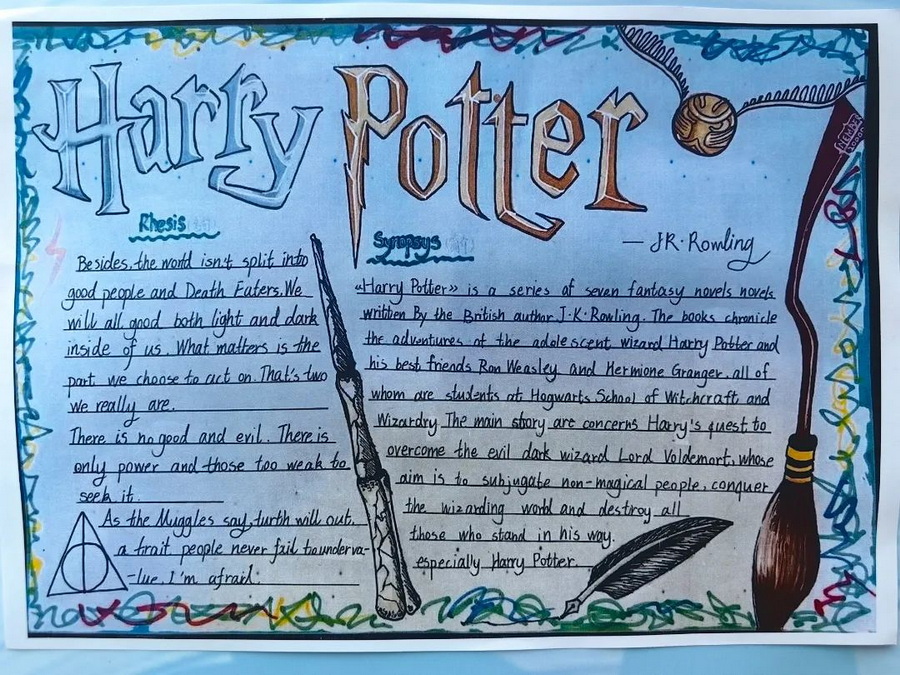 Harry Potter
— J·K·Rowling
Rhesis
Besides, the world isn't split into
good people and Death Eaters. We
will all good both light and dark
inside of us. What matters is the
part we choose to act on. That's two
we really are.
There is no good and evil. There is
only power and those too weak to
seek it.
As the Muggles say, turth will out.
a trait people never fail to underva-
-lue. I'm afraid.
Synopsys
«Harry Potter» is a series of seven fantasy novels novels
written By the British author J·K·Rowling. The books chronicle
the adventures of the adolescent wizard Harry Potter and
his best friends Ron Weasley and Hermione Granger, all of
whom are students at Hogwarts School of Witchcraft and
Wizardry. The main story are concerns Harry's quest to
overcome the evil dark wizard Lord Voldemort, whose
aim is to subjugate non-magical people, conquer
the wizarding world and destroy all
those who stand in his way.
especially Harry Potter.